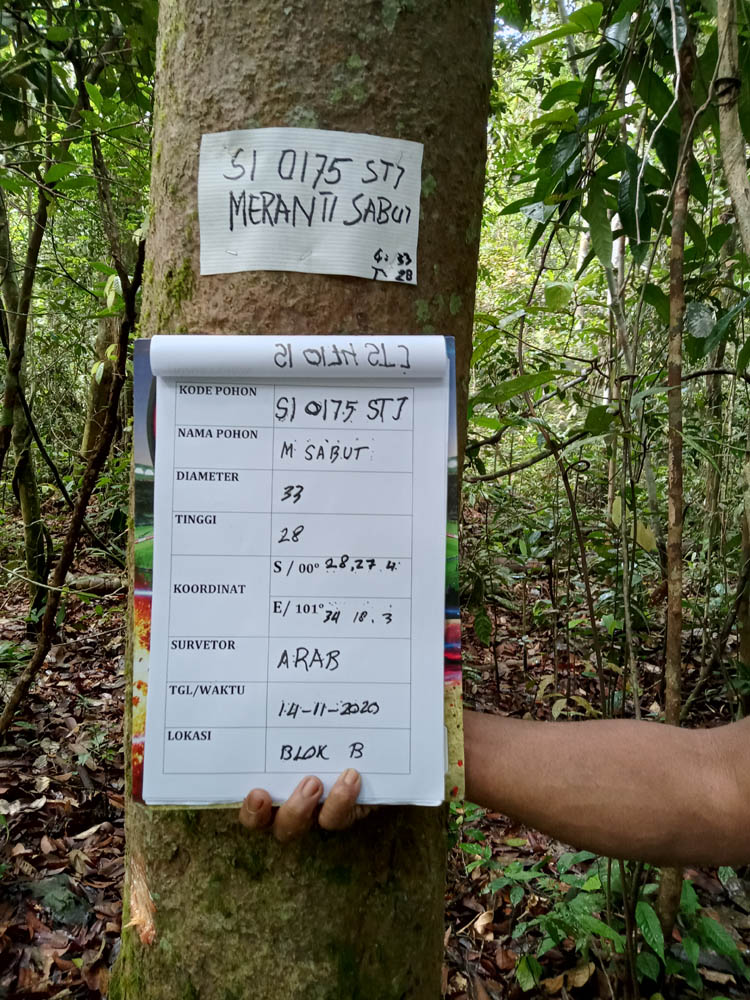 S1 0175 STJ
MERANTI SABUT
G: 33
T 28
KODE POHON S1 0175 STJ
NAMA POHON M SABUT
DIAMETER 33
TINGGI 28
KOORDINAT S / 00° 28,27.4
E/ 101° 34 18.3
SURVETOR ARAB
TGL/WAKTU 14-11-2020
LOKASI BLOK B